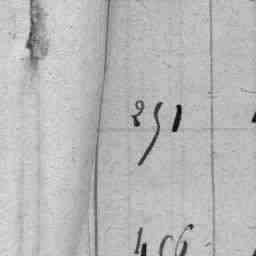 251
456